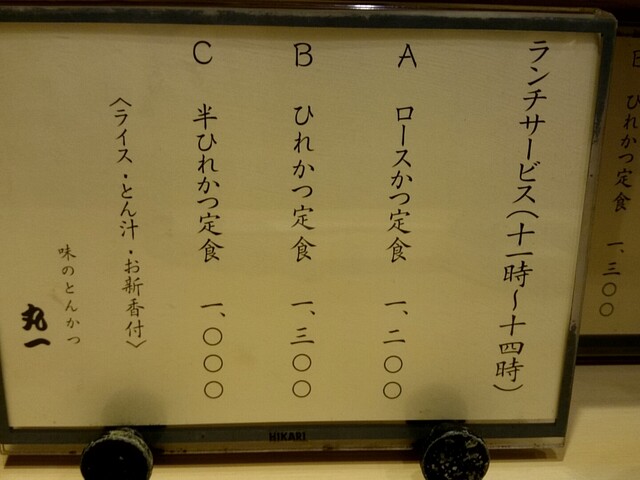 ランチサービス(十一時～十四時)
A ロースかつ定食 一、二〇〇
B ひれかつ定食 一、三〇〇
C 半ひれかつ定食 一、〇〇〇
〈ライス・とん汁・お新香付〉
味のとんかつ
丸一
HIKARI
B ひれかつ定食 一、三〇〇